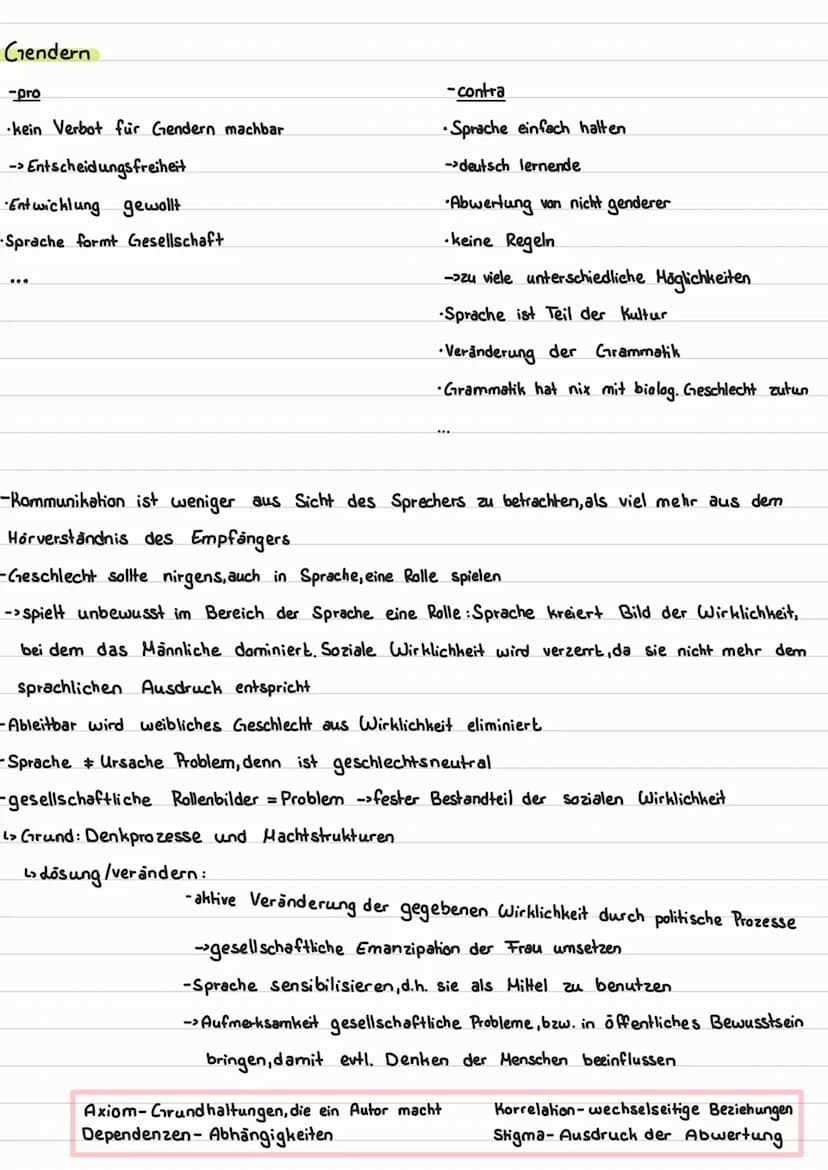 Gendern
-pro
·kein Verbot für Gendern machbar
-> Entscheidungsfreiheit
·Entwicklung gewollt
·Sprache formt Gesellschaft
...
-contra
·Sprache einfach halten
->deutsch lernende
·Abwertung von nicht genderer
·keine Regeln
->zu viele unterschiedliche Möglichkeiten
·Sprache ist Teil der Kultur
·Veränderung der Grammatik
·Grammatik hat nix mit biolog. Geschlecht zutun
...
-Kommunikation ist weniger aus Sicht des Sprechers zu betrachten, als viel mehr aus dem
Hörverständnis des Empfängers
-Geschlecht sollte nirgens, auch in Sprache, eine Rolle spielen
->spielt unbewusst im Bereich der Sprache eine Rolle: Sprache kreiert Bild der Wirklichkeit,
bei dem das Männliche dominiert. Soziale Wirklichkeit wird verzerrt, da sie nicht mehr dem
sprachlichen Ausdruck entspricht
-Ableitbar wird weibliches Geschlecht aus Wirklichkeit eliminiert
-Sprache ≠ Ursache Problem, denn ist geschlechtsneutral
-gesellschaftliche Rollenbilder = Problem ->fester Bestandteil der sozialen Wirklichkeit
↳ Grund: Denkprozesse und Machtstrukturen
↳ Lösung/verändern:
-aktive Veränderung der gegebenen Wirklichkeit durch politische Prozesse
->gesellschaftliche Emanzipation der Frau umsetzen
-Sprache sensibilisieren, d.h. sie als Mittel zu benutzen
->Aufmerksamkeit gesellschaftliche Probleme, bzw. in öffentliches Bewusstsein
bringen, damit evtl. Denken der Menschen beeinflussen
Axiom- Grundhaltungen, die ein Autor macht
Dependenzen- Abhängigkeiten
Korrelation- wechselseitige Beziehungen
Stigma- Ausdruck der Abwertung